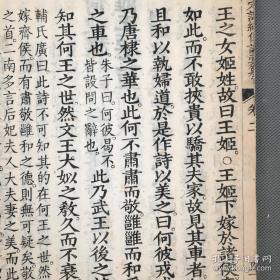 王之女姬姓故曰王姬○王姬下嫁於諸
如此而不敢挾貴以驕其夫家故見其車者
且和以執婦道於是作詩以美之曰何彼戎
乃唐棣之華也此何不肅肅而敬雝雝而和
之車也皆設問之辭也此乃武王以後之
朱子曰何彼曷不
知其何王之世然文王大姒之敎久而不衰
輔氏廣曰此詩不可知其的在何王之世然
嫁齊侯而有肅敬雝和之德則無可疑矣散
之首二南多言后妃夫人夫妻之美而此